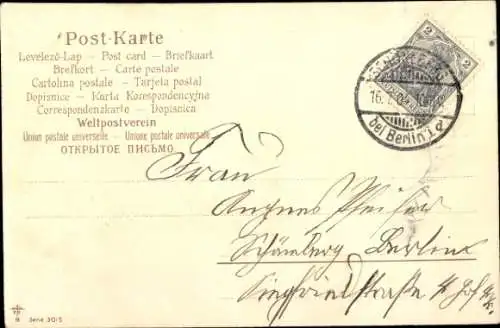 Post-Karte
Levelező-Lap — Post card — Briefkaart
Brefkort — Carte postale
Cartolina postale — Tarjeta postal
Dopisnice — Karta Korespondencyjna
Correspondenzkarte — Dopisnica
Weltpostverein
Union postale universelle — Unione postale universale
ОТКРЫТОЕ ПИСЬМО
2 2
16.
bei Berlin
Frau
Agnes Pfeifer
Schöneberg Berlin
Siegfriedstraße
Serie 3015